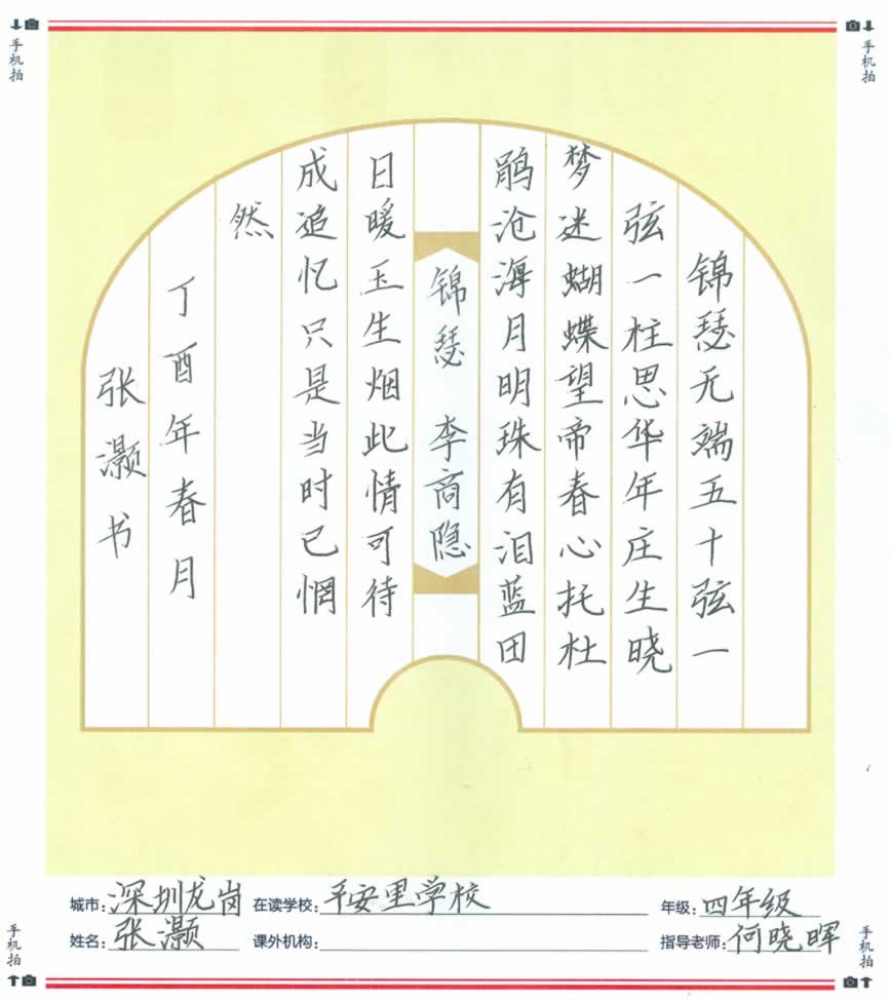 手机拍
手机拍
锦瑟无端五十弦一
弦一柱思华年庄生晓
梦迷蝴蝶望帝春心托杜
鹃沧海月明珠有泪蓝田
锦瑟 李商隐
日暖玉生烟此情可待
成追忆只是当时已惘
然
丁酉年春月
张灏书
城市:深圳龙岗 在读学校:平安里学校 年级:四年级
姓名:张灏 课外机构: 指导老师:何晓晖
手机拍
手机拍